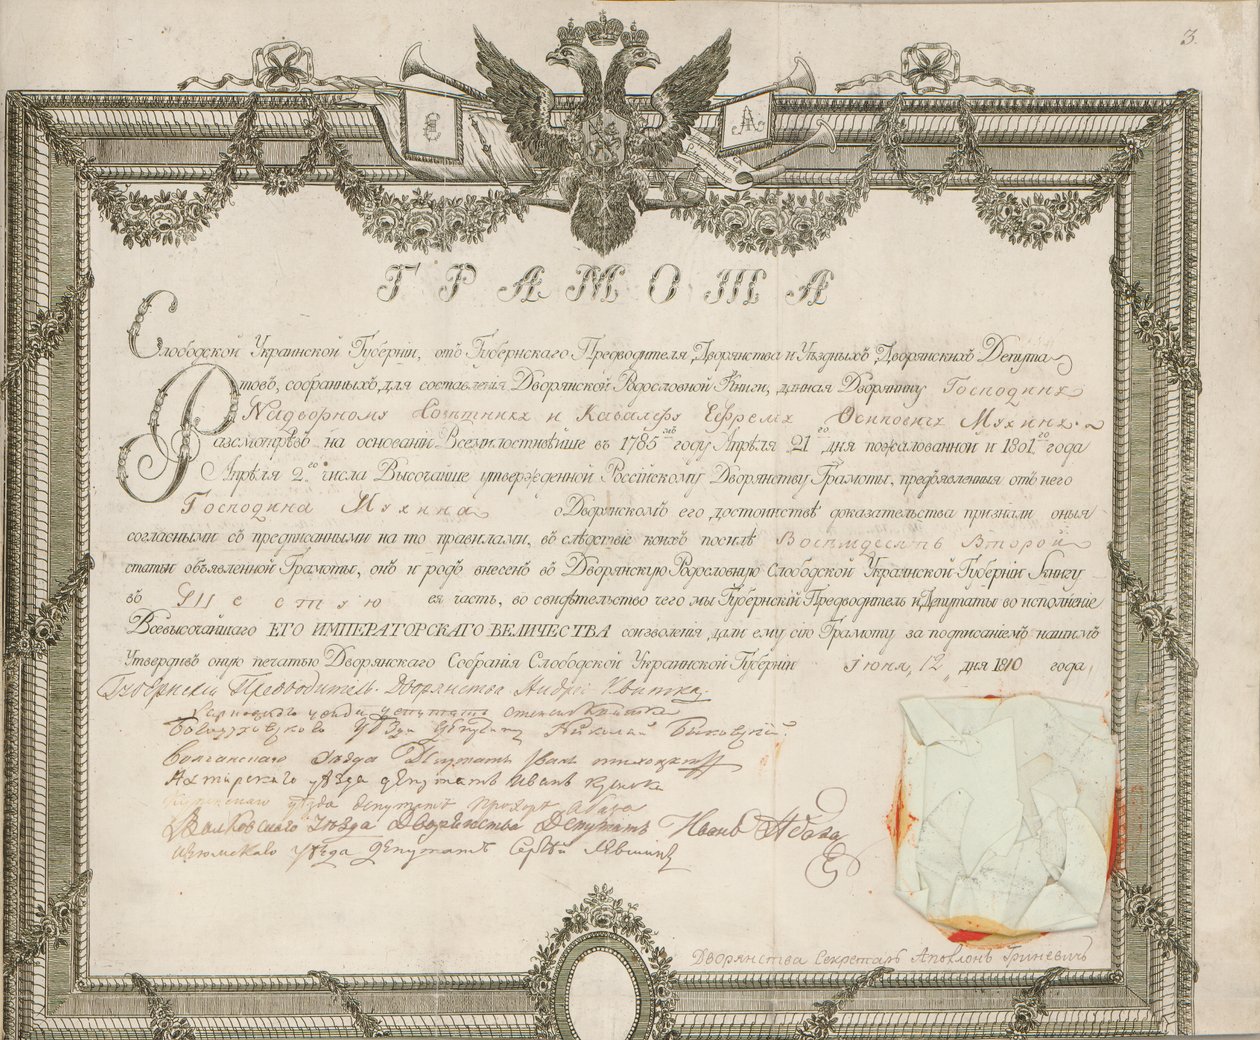 3.
Е
А
ГРАМОТА
Слободской Украинской Губерніи, отъ Губернскаго Предводителя Дворянства и Уѣздныхъ Дворянскихъ Депута
товъ, собранныхъ для составленія Дворянской Родословной Книги, данная Дворянину Господину
Надворному Совѣтнику и Кавалеру Ефрему Осиповичу Мухину.
Разсмотрѣвъ на основаніи Всемилостивѣйше въ 1785мъ году Апрѣля 21го дня пожалованной и 1801го года
Апрѣля 2го числа Высочайше утвержденной Россійскому Дворянству Грамоты, предъявленныя отъ него
Господина Мухина о Дворянскомъ его достоинствѣ доказательства признали оныя
согласными съ предписанными на то правилами, въ слѣдствіе коихъ по силѣ Восемдесятъ Второй
статьи объявленной Грамоты, онъ и родъ внесенъ въ Дворянскую Родословную Слободской Украинской Губерніи Книгу
въ Шестую ея часть, во свидѣтельство чего мы Губернскій Предводитель и Депутаты во исполненіе
Всевысочайшаго ЕГО ИМПЕРАТОРСКАГО ВЕЛИЧЕСТВА соизволенія дали ему сію Грамоту за подписаніемъ нашимъ
Утвердивъ оную печатью Дворянскаго Собранія Слободской Украинской Губерніи Іюня, 12 дня 1810 года,
Губернскій Предводитель Дворянства Андрей Квитка
уѣзда депутатъ
Богодуховскаго уѣзда Депутатъ Николай
уѣзда Депутатъ
Ахтырскаго уѣзда депутатъ Иванъ
уѣзда депутатъ
Валковскаго Уѣзда Дворянства Депутатъ Иванъ Абаза
Изюмскаго уѣзда депутатъ Сергѣй
Дворянства Секретарь Аполонъ Гриневичъ